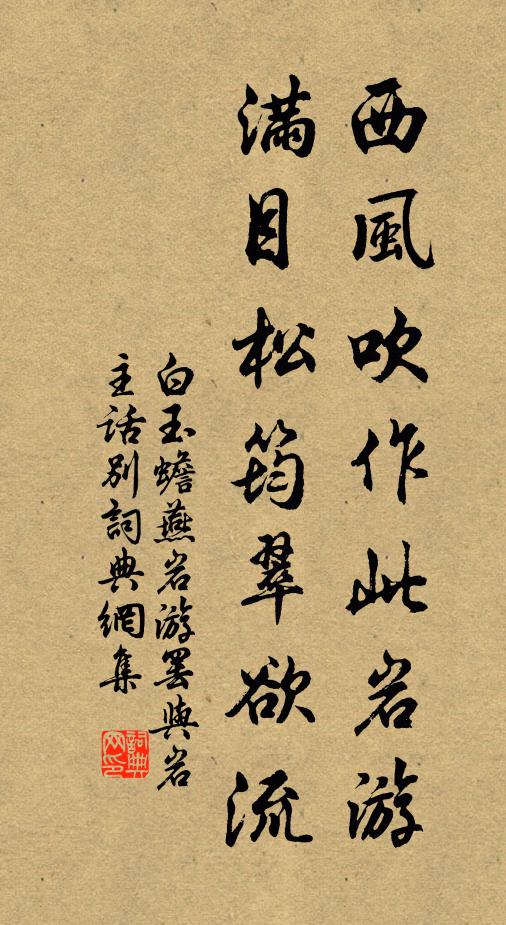 西風吹作此岩游
滿目松筠翠欲流
白玉蟾燕岩游罢與岩
主話別詞典網集
詞典网印